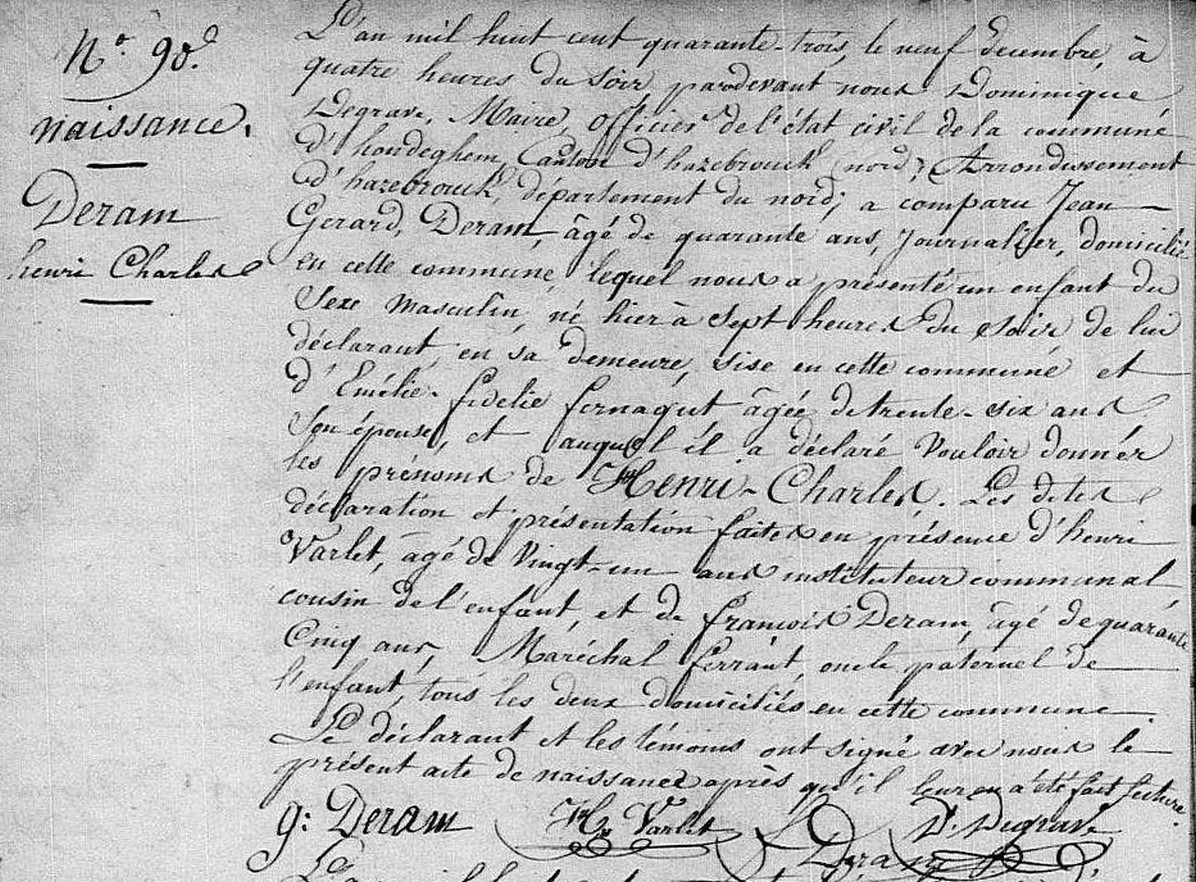 N.° 90.
naissance.
Deram
henri Charles
L'an mil huit cent quarante-trois, le neuf décembre, à
quatre heures du soir, pardevant nous Dominique
Degrave, Maire, officier de l'état civil de la commune
d'hondeghem, Canton d'hazebrouck (nord) Arrondissement
d'hazebrouck, département du nord; a comparu Jean
Gerard, Deram, âgé de quarante ans, Journalier, domicilié
en cette commune, lequel nous a présenté un enfant du
Sexe Masculin, né hier à Sept heures du soir de lui
déclarant, en sa demeure, sise en cette commune et
d'Emélie-fidelie fernagut âgée de trente-six ans
Son épouse, et auquel il a déclaré Vouloir donner
les prénoms de Henri-Charles. Les dites
déclaration et présentation faites en présence d'henri
Varlet, âgé de Vingt-un ans instituteur communal
cousin de l'enfant, et de françois Deram, âgé de quarante
Cinq ans, Maréchal ferrant, oncle paternel de
l'enfant, tous les deux domiciliés en cette commune.
Le déclarant et les témoins ont signé avec nous le
présent acte de naissance après qu'il leur en a été fait lecture.
g: Deram H. Varlet D. Degrave
Deram